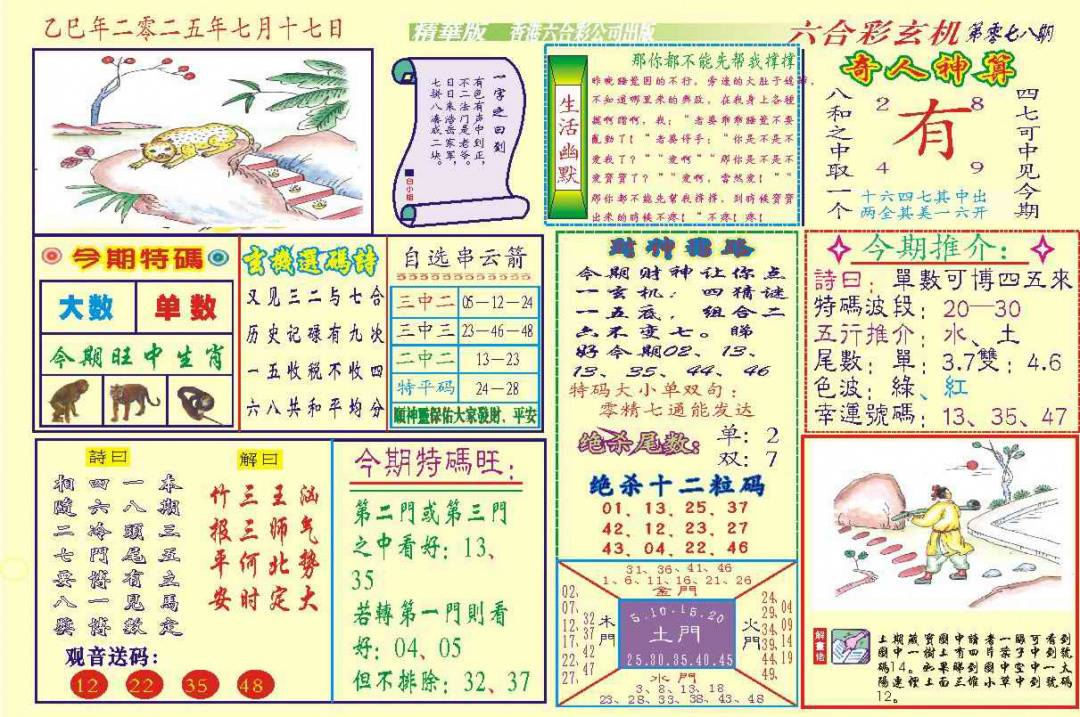 乙巳年二零二五年七月十七日
精華版 香港六合彩公司出版
六合彩玄机 第零七八期
一字之曰剑
有色有声中到正，
不二法门是老爷。
日日来浩岳家军，
七拼八凑成二块。
白小姐
生活幽默
那你都不能先帮我撑撑
昨晚睡觉困的不行，旁边的大肚子媳婦，
不知道哪里来的興趣，在我身上各種
摸啊蹭啊，我："老婆乖乖睡覺不要
亂動了！"老婆停手："你是不是不
爱我了？""爱啊""那你是不是不
爱寶寶了？""爱啊，當然爱！""
那你都不能先帮我撑撑，到時候寶寶
出来的時候不疼！"不疼！疼！
奇人神算
八和之中取一个
2 8
有
4 9
四七可中见今期
十六四七其中出
两全其美一六开
今期特碼
大数 单数
今期旺中生肖
玄機選碼詩
又见三二与七合
历史记碌有九次
一五收税不收四
六八共和平均分
自选串云箭
三中二 05—12—24
三中三 23—46—48
二中二 13—23
特平码 24—28
顺神靈保佑大家發財、平安
財神指路
今期财神让你点
一玄机：四猜谜
一五底，组合二
六不变七。睇
好今期02、13、
13、35、44、46
特码大小单双句：
零精七通能发达
绝杀尾数：
单：2
双：7
绝杀十二粒码
01、13、25、37
42、12、23、27
43、04、22、46
今期推介：
詩曰：單數可博四五來
特碼波段：20—30
五行推介：水、土
尾數：單：3.7雙：4.6
色波：綠、紅
幸運號碼：13、35、47
詩曰
本期三五立馬定
一八頭尾有見數
四六冷門博一博
相隨二七要八獎
解曰
汹气势大
王师北定
三三何时
竹报平安
观音送码：
12 22 35 48
今期特碼旺：
第二門或第三門
之中看好：13、
35
若轉第一門則看
好：04、05
但不排除：32、37
31、36、41、46
1、6、11、16、21、26
金門
02、07、12、17、22、27、
32、37、42、47
木門
5.10.15.20
土門
25.30.35.40.45
火門
24、29、34、39、44、49、
04、09、14、19
水門
3、8、13、18
23、28、33、38、43、48
解畫佬
上期藏寶圖中請老一睇可看到
圖中一樹上有四片葉子中到號
碼14。如果睇到圖中空中一太
陽連裡上面三堆小草中到號碼
12。